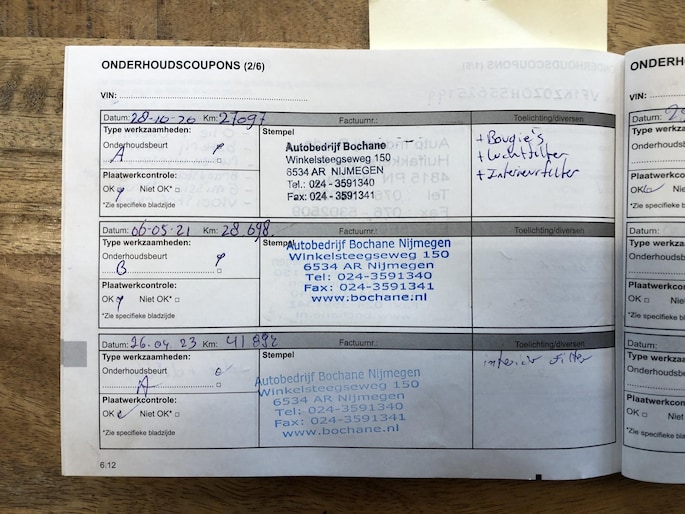 ONDERHOUDSCOUPONS (2/6)
VIN:
Datum: 28-10-20 Km: 27097 Factuurnr.: Toelichting/diversen
Type werkzaamheden: Stempel
Onderhoudsbeurt
A
Plaatwerkcontrole:
OK Niet OK*
*Zie specifieke bladzijde
Autobedrijf Bochane
Winkelsteegseweg 150
6534 AR NIJMEGEN
Tel.: 024 - 3591340
Fax: 024 - 3591341
+ Bougie's
+ Luchtfilter
+ Interieurfilter
Datum: 06-05-21 Km: 28.698 Factuurnr.: Toelichting/diversen
Type werkzaamheden: Stempel
Onderhoudsbeurt
B
Plaatwerkcontrole:
OK Niet OK*
*Zie specifieke bladzijde
Autobedrijf Bochane Nijmegen
Winkelsteegseweg 150
6534 AR Nijmegen
Tel: 024-3591340
Fax: 024-3591341
www.bochane.nl
Datum: 26.04.23 Km: 41892 Factuurnr.: Toelichting/diversen
Type werkzaamheden: Stempel
Onderhoudsbeurt
A
Plaatwerkcontrole:
OK Niet OK*
*Zie specifieke bladzijde
Autobedrijf Bochane Nijmegen
Winkelsteegseweg 150
6534 AR Nijmegen
Tel: 024-3591340
Fax: 024-3591341
www.bochane.nl
interieur filter
6.12
ONDERH
Datum:
Type werkza
Onderhoudsb
Plaatwerkcon
OK Niet
*Zie specifieke bla
Datum:
Type werkza
Onderhoudsb
Plaatwerkcon
OK Niet
*Zie specifieke bla
Datum:
Type werkzaa
Onderhoudsbe
Plaatwerkcont
OK Niet
*Zie specifieke bladz